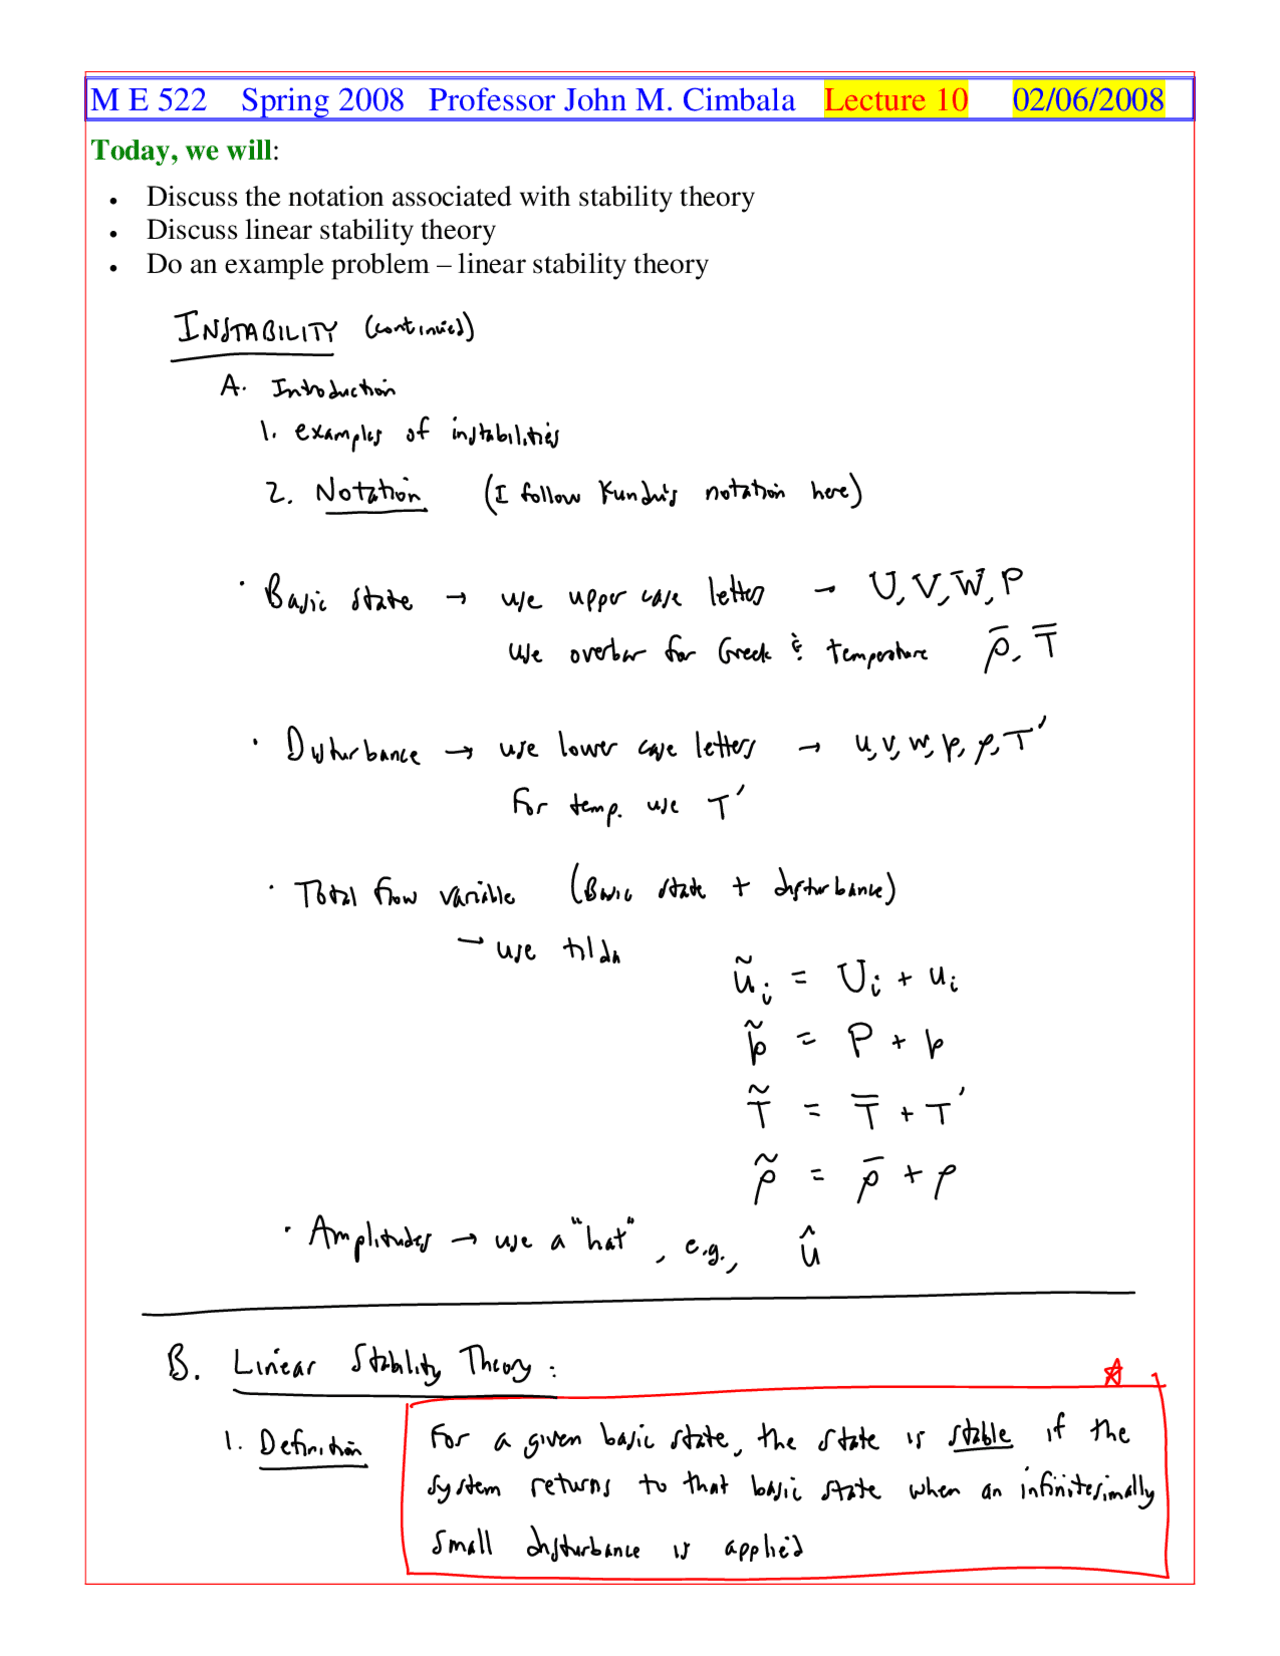 M E 522 Spring 2008 Professor John M. Cimbala Lecture 10 02/06/2008
Today, we will:
• Discuss the notation associated with stability theory
• Discuss linear stability theory
• Do an example problem – linear stability theory
INSTABILITY (continued)
A. Introduction
1. examples of instabilities
2. Notation (I follow Kundu's notation here)
· Basic state → use upper case letters → U, V, W, P
use overbar for Greek & temperature ρ̅, T̅
· Disturbance → use lower case letters → u, v, w, p, ρ, T′
For temp. use T′
· Total flow variable (Basic state + disturbance)
→ use tilda
ũᵢ = Uᵢ + uᵢ
p̃ = P + p
T̃ = T̅ + T′
ρ̃ = ρ̅ + ρ
· Amplitudes → use a "hat", e.g., û
B. Linear Stability Theory:
1. Definition For a given basic state, the state is stable if the
system returns to that basic state when an infinitesimally
small disturbance is applied